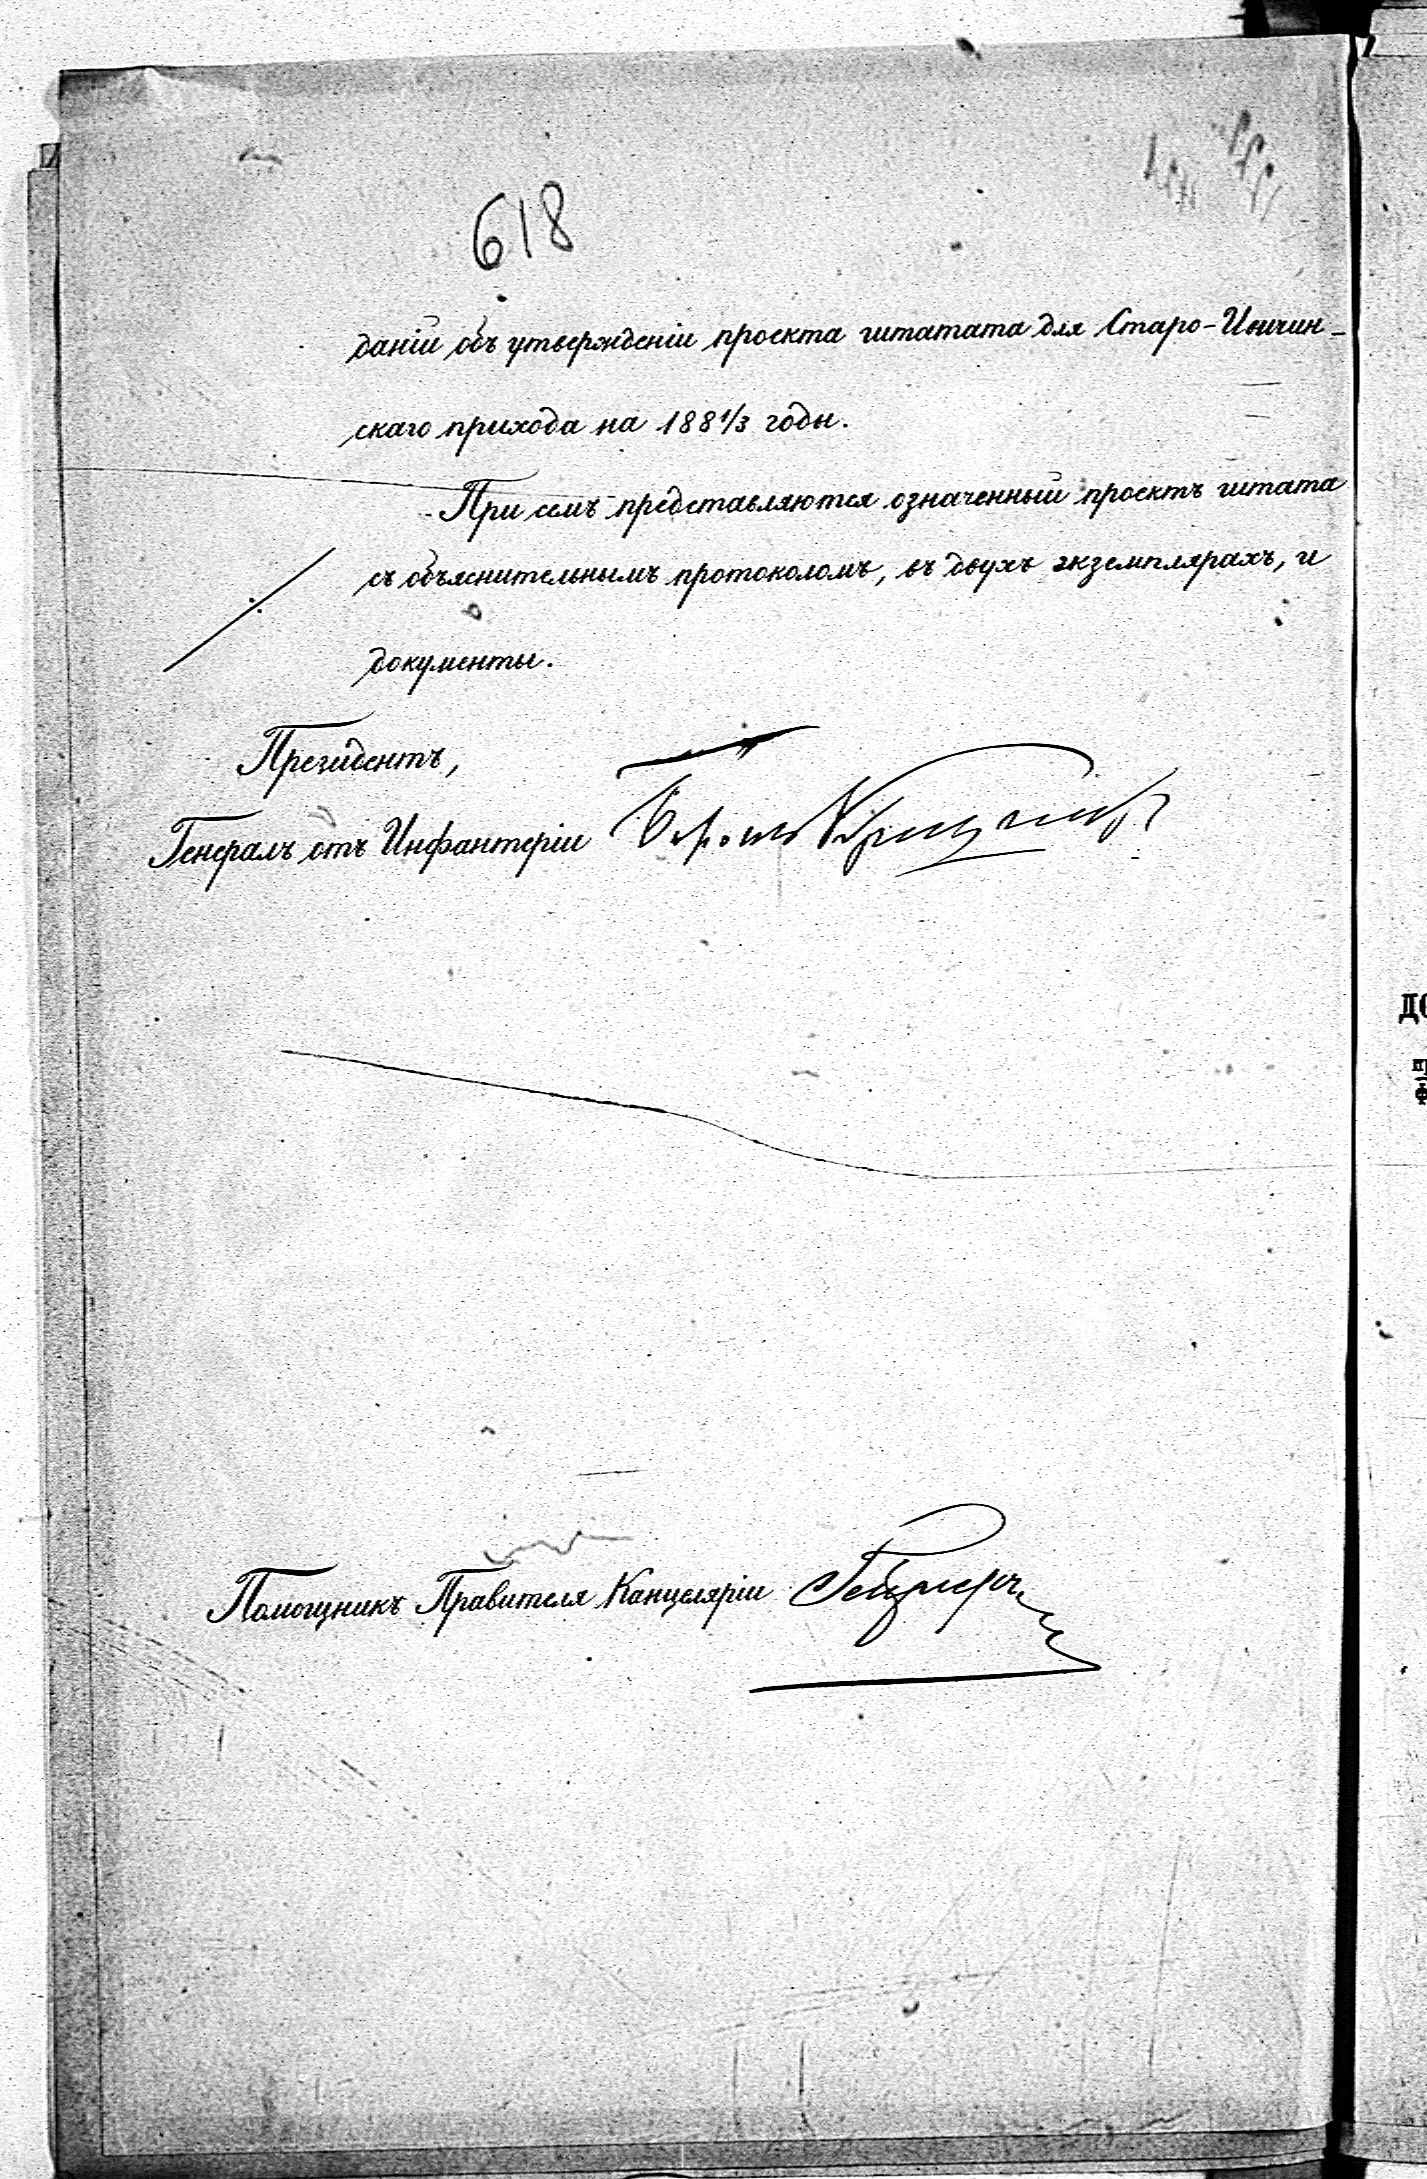 618
даніи объ утвержденіи проекта штатата для Старо-
скаго прихода на 1881/3 годы.
При семъ представляются означенный проектъ штата
съ объяснительнымъ протоколомъ, въ двухъ экземплярахъ, и
документы.
Президентъ,
Генералъ отъ Инфантеріи Баронъ
Помощникъ Правителя Канцеляріи